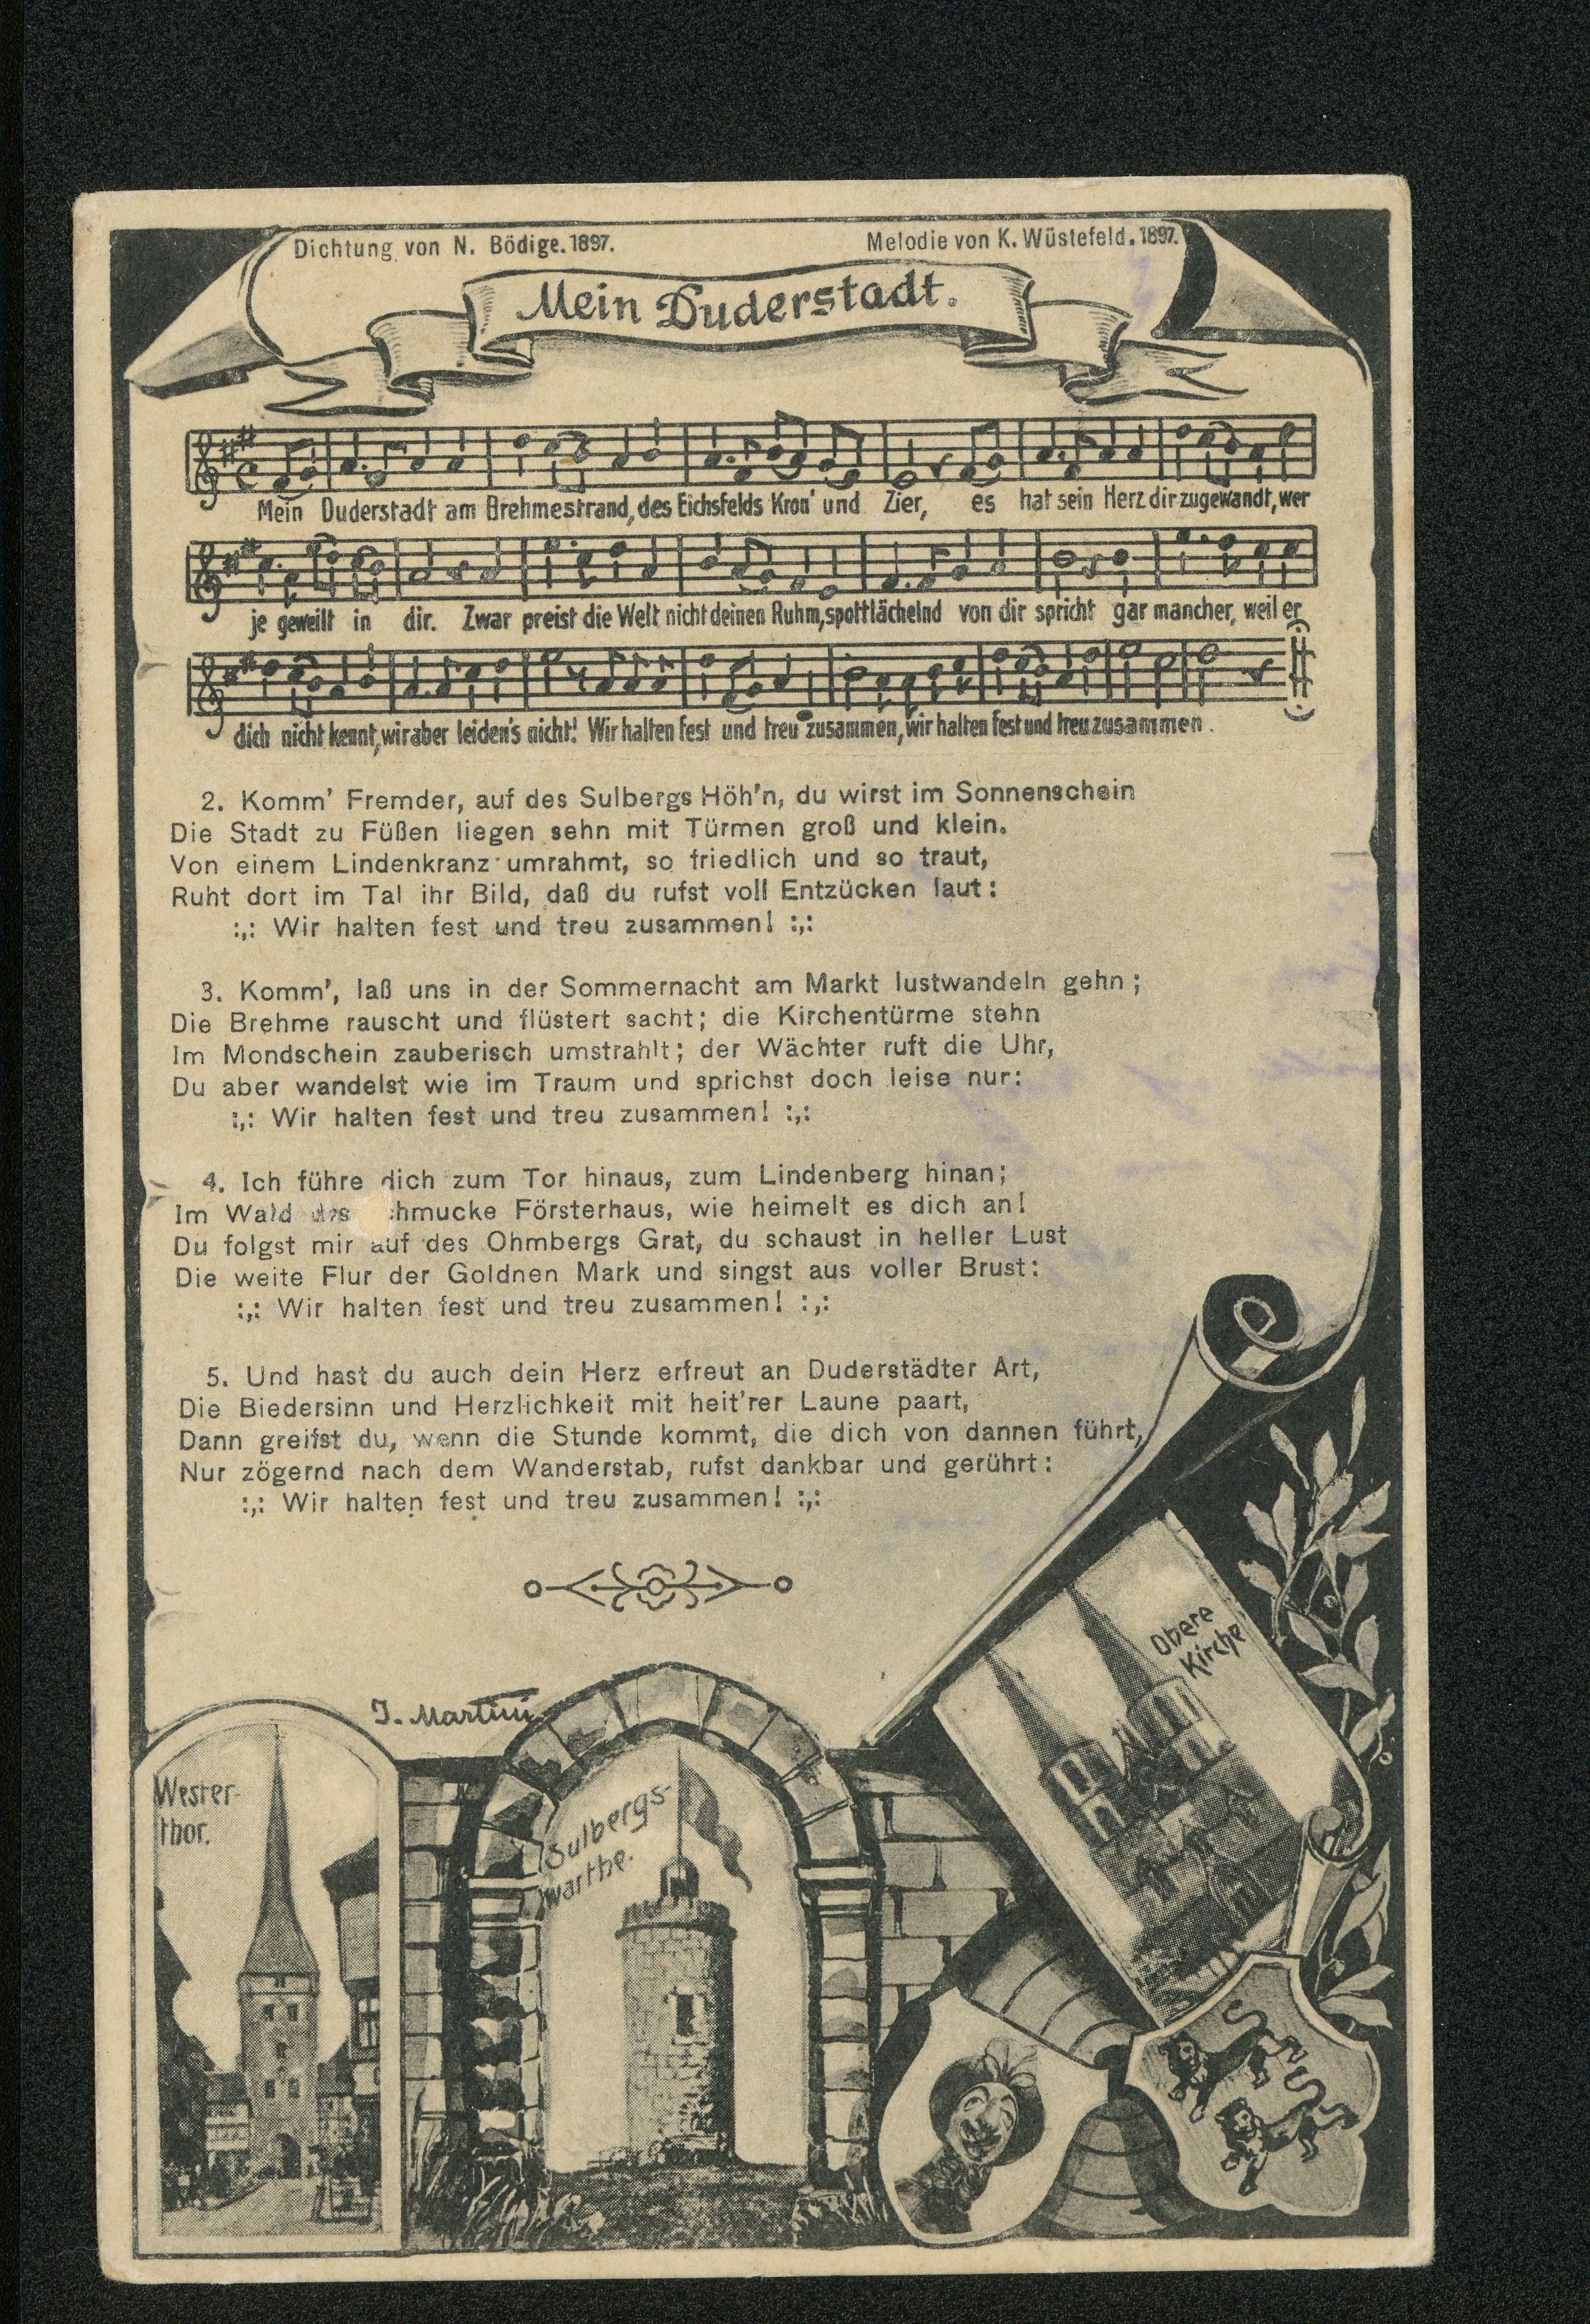 Dichtung von N. Bödige. 1897.
Melodie von K. Wüstefeld. 1897.
Mein Duderstadt.
Mein Duderstadt am Brehmestrand, des Eichsfelds Kron' und Zier, es hat sein Herz dir zugewandt, wer
je geweilt in dir. Zwar preist die Welt nicht deinen Ruhm, spottlächelnd von dir spricht gar mancher, weil er
dich nicht kennt, wir aber leiden's nicht! Wir halten fest und treu zusammen, wir halten fest und treu zusammen.
2. Komm' Fremder, auf des Sulbergs Höh'n, du wirst im Sonnenschein
Die Stadt zu Füßen liegen sehn mit Türmen groß und klein.
Von einem Lindenkranz umrahmt, so friedlich und so traut,
Ruht dort im Tal ihr Bild, daß du rufst voll Entzücken laut:
:,: Wir halten fest und treu zusammen! :,:
3. Komm', laß uns in der Sommernacht am Markt lustwandeln gehn;
Die Brehme rauscht und flüstert sacht; die Kirchentürme stehn
Im Mondschein zauberisch umstrahlt; der Wächter ruft die Uhr,
Du aber wandelst wie im Traum und sprichst doch leise nur:
:,: Wir halten fest und treu zusammen! :,:
4. Ich führe dich zum Tor hinaus, zum Lindenberg hinan;
Im Wald das chmucke Försterhaus, wie heimelt es dich an!
Du folgst mir auf des Ohmbergs Grat, du schaust in heller Lust
Die weite Flur der Goldnen Mark und singst aus voller Brust:
:,: Wir halten fest und treu zusammen! :,:
5. Und hast du auch dein Herz erfreut an Duderstädter Art,
Die Biedersinn und Herzlichkeit mit heit'rer Laune paart,
Dann greifst du, wenn die Stunde kommt, die dich von dannen führt,
Nur zögernd nach dem Wanderstab, rufst dankbar und gerührt:
:,: Wir halten fest und treu zusammen! :,:
J. Martini
Obere
Kirche
Wester-
thor.
Sulbergs-
warthe.